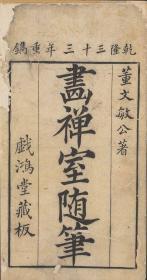 乾隆三十三年重鐫
董文敏公著
畫禪室随筆
戯鴻堂藏板